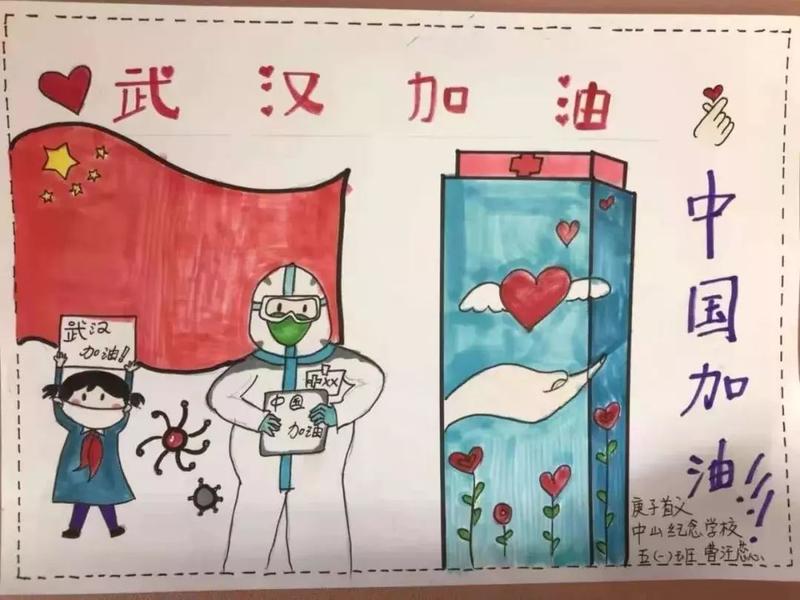 武汉加油
中国加油!!!
武汉
加油!
中xx
中国
加油
庚子首义
中山纪念学校
五(一)班 曹汪蕊